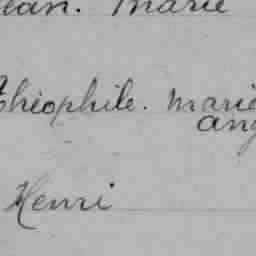 Jean. Marie
Théophile. Marie
ang
Henri